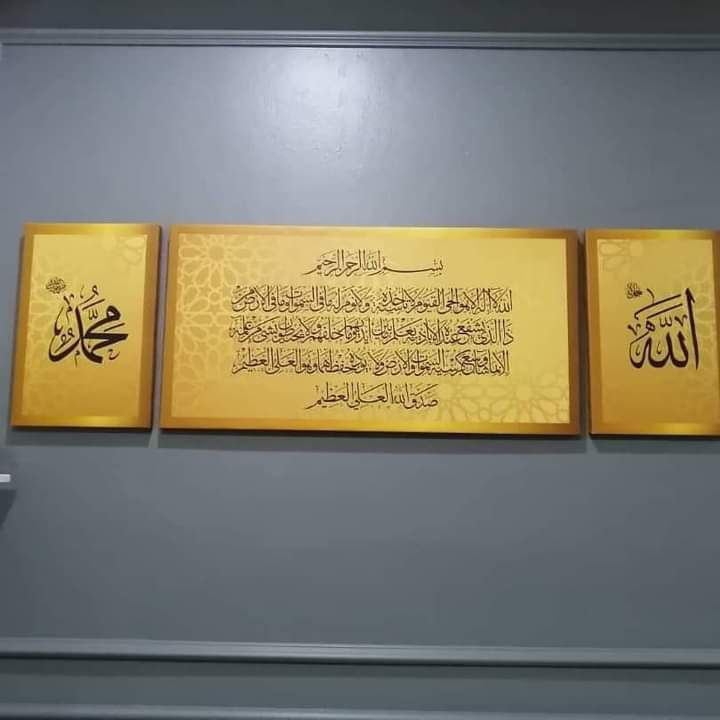 الله
بسم الله الرحمن الرحيم
الله لا إله إلا هو الحي القيوم لا تأخذه سنة ولا نوم له ما في السموات وما في الأرض من
ذا الذي يشفع عنده إلا بإذنه يعلم ما بين أيديهم وما خلفهم ولا يحيطون بشيء من علمه
إلا بما شاء وسع كرسيه السموات والأرض ولا يؤده حفظهما وهو العلي العظيم
صدق الله العلي العظيم
محمد